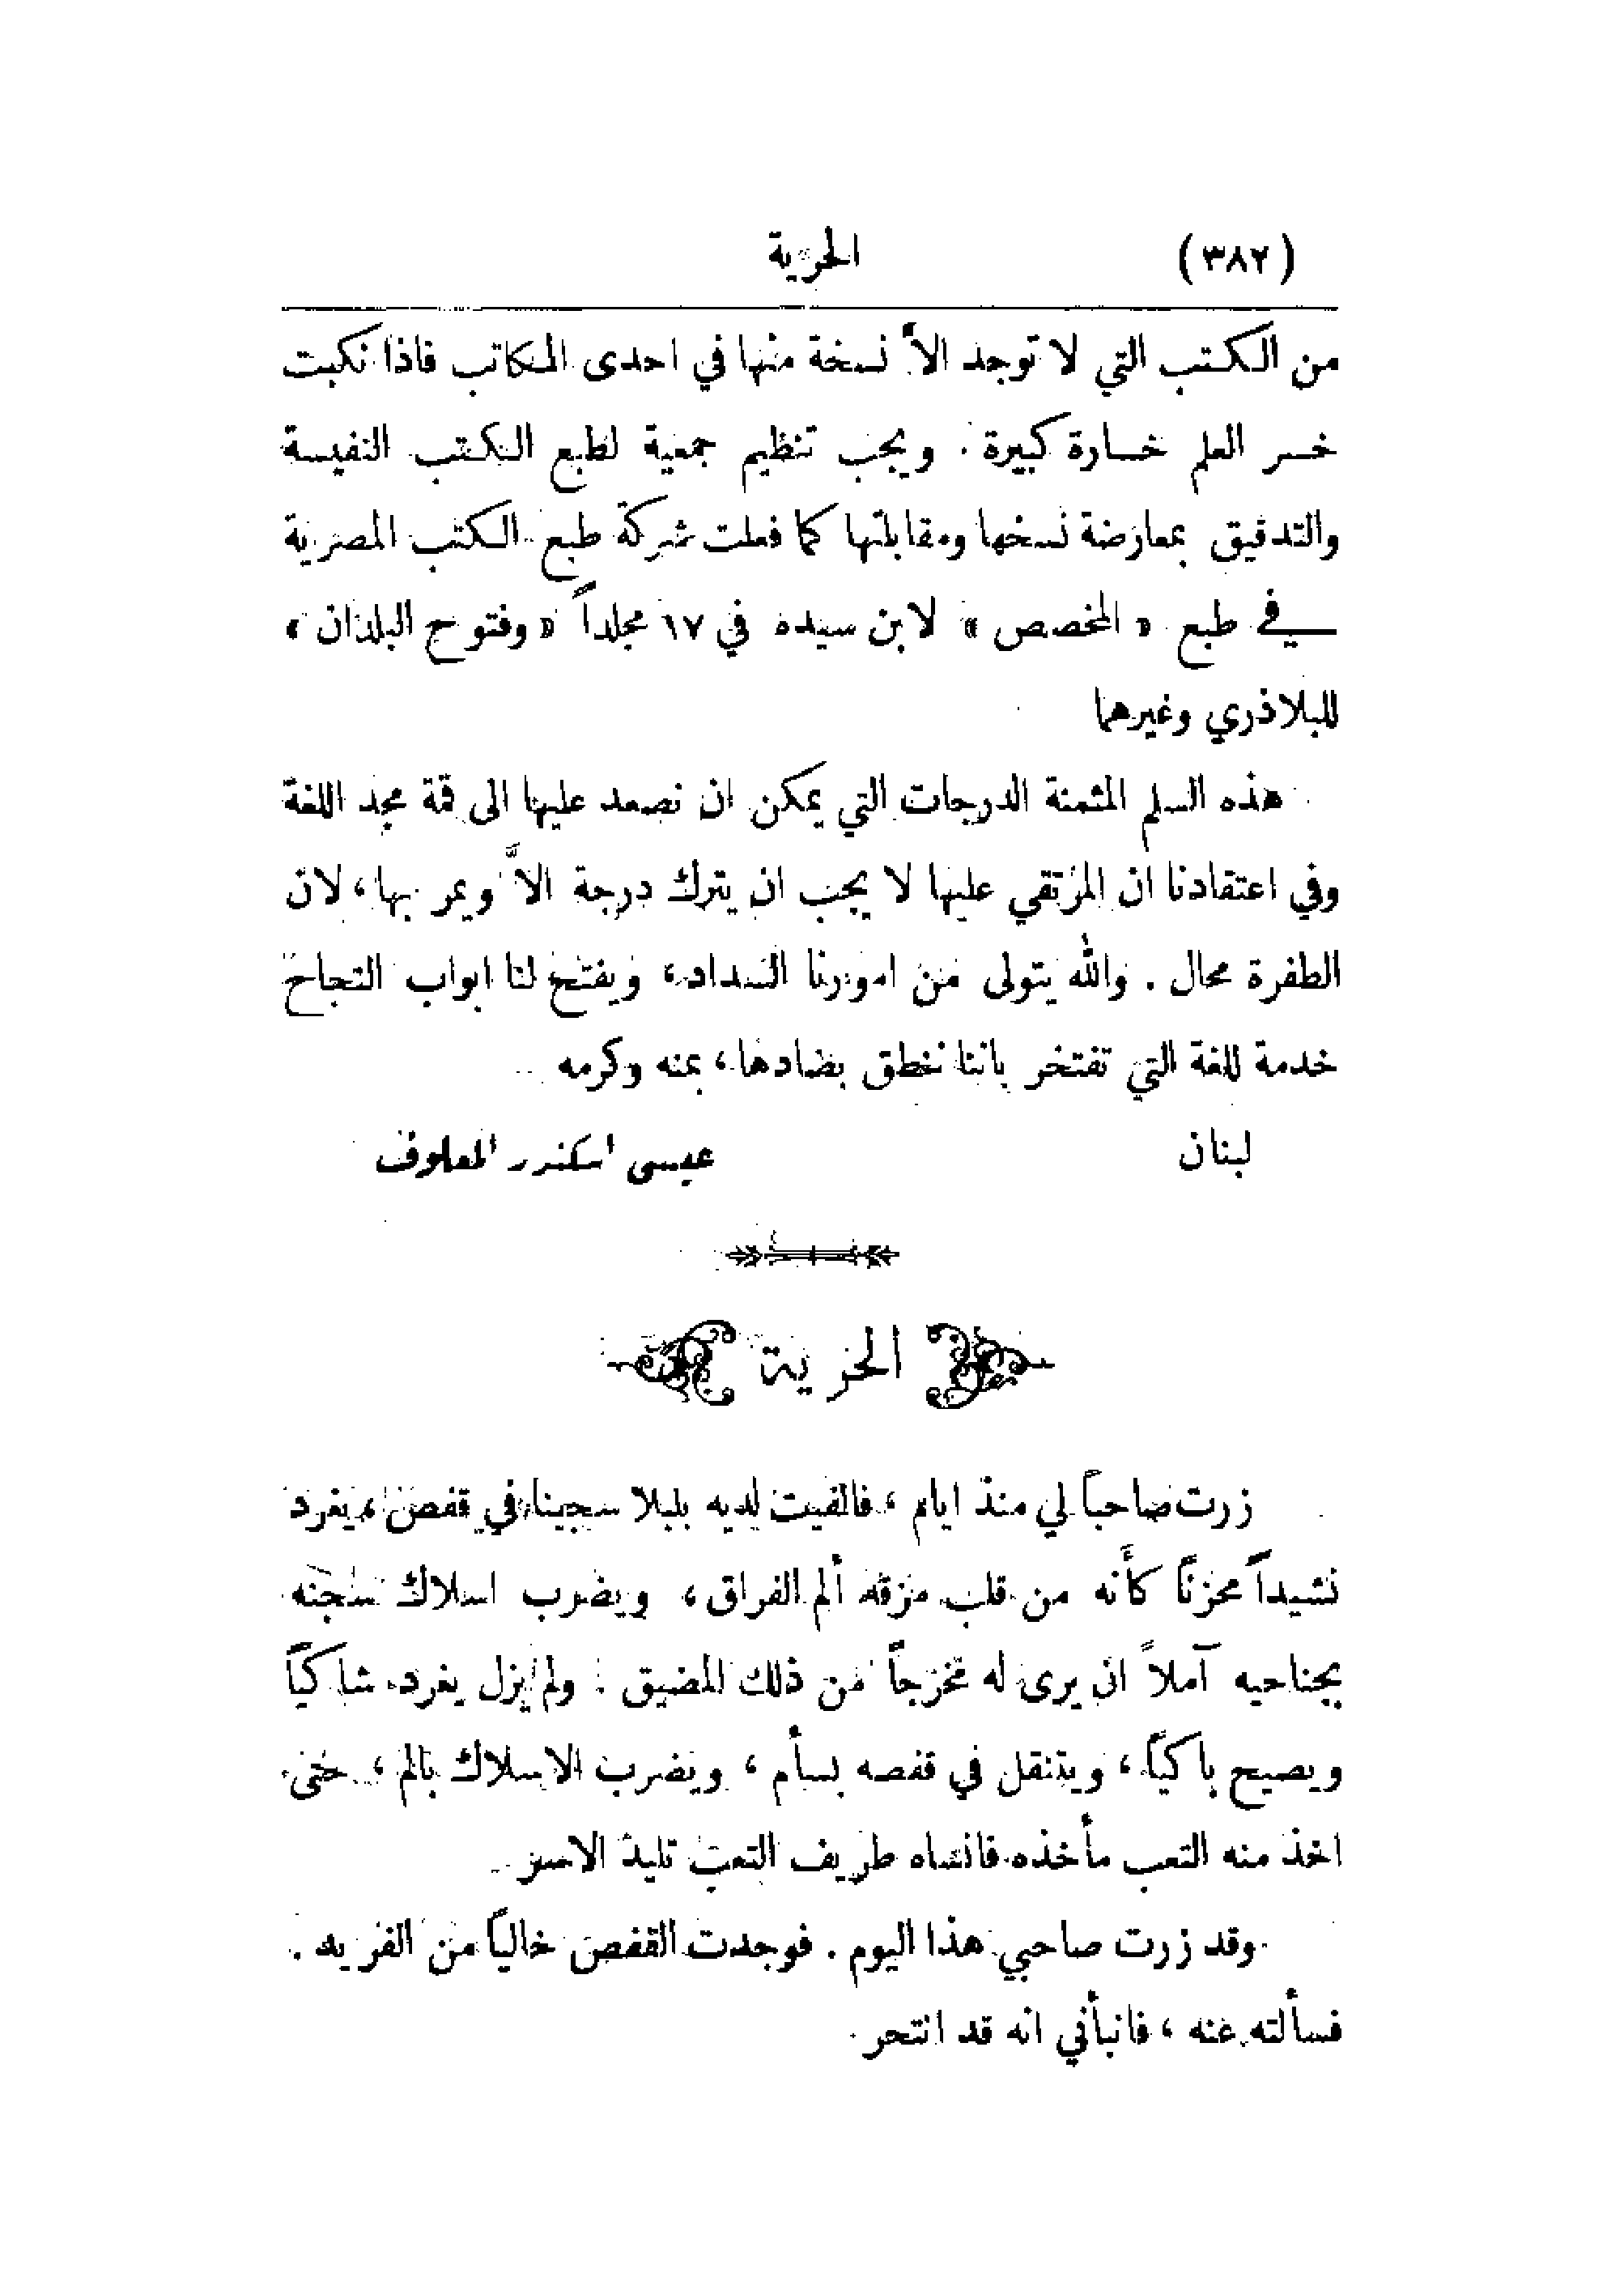 (٣٨٢) الحرية
من الكتب التي لا توجد الاَّ نسخة منها في احدى المكاتب فاذا نكبت
خسر العلم خسارة كبيرة . ويجب تنظيم جمعية لطبع الكتب النفيسة
والتدقيق بمعارضة نسخها ومقابلتها كما فعلت شركة طبع الكتب المصرية
في طبع « المخصص » لابن سيده في ١٧ مجلداً « وفتوح البلدان »
للبلاذري وغيرهما
هذه السلم المثمنة الدرجات التي يمكن ان نصعد عليها الى قمة مجد اللغة
وفي اعتقادنا ان المرتقي عليها لا يجب ان يترك درجة الاَّ ويمر بها ، لان
الطفرة محال . والله يتولى من امورنا السداد ، ويفتح لنا ابواب النجاح
خدمة للغة التي تفتخر باننا ننطق بضادها ، بمنه وكرمه
لبنان عيسى اسكندر المعلوف
الحرية
زرت صاحباً لي منذ ايام ، فالفيت لديه بلبلا سجينا في قفص ، يغرد
نشيداً محزناً كأَنه من قلب مزقه ألم الفراق ، ويضرب اسلاك سجنه
بجناحيه آملاً ان يرى له مخرجاً من ذلك المضيق . ولم يزل يغرد شاكياً
ويصيح باكياً ، ويتنقل في قفصه بسأم ، ويضرب الاسلاك بالم ، حتى
اخذ منه التعب مأخذه فانساه طريف التعب تليد الاسر
وقد زرت صاحبي هذا اليوم . فوجدت القفص خالياً من الغريد .
فسألته عنه ، فانبأني انه قد انتحر